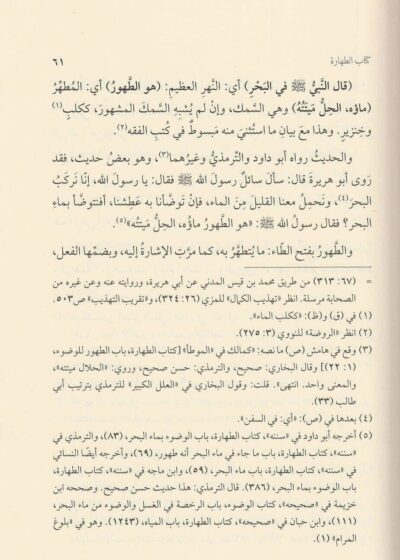 كتاب الطهارة ٦١
(قال النَّبيُّ ﷺ في البَحْرِ) أي: النَّهرِ العظيمِ: (هو الطَّهورُ) أي: المُطهِّرُ
(ماؤه، الحِلُّ مَيْتَتُهُ) وهي السمك، وإنْ لم يُشبِهِ السَّمكَ المشهورَ، ككلبٍ(١)
وخنزيرٍ. وهذا معَ بيانِ ما استُثنيَ منه مَبسوطٌ في كُتبِ الفقه(٢).
والحديثُ رواه أبو داود والتِّرمذيُّ وغيرُهما(٣)، وهو بعضُ حديث، فقد
رَوى أبو هريرةَ قال: سألَ سائلٌ رسولَ الله ﷺ فقال: يا رسولَ الله، إنَّا نَركَبُ
البحرَ(٤)، ونَحمِلُ معنا القليلَ مِنَ الماء، فإنْ تَوضَّأنا به عَطِشنا، أفنتوضَّأ بماءِ
البحر؟ فقال رسولُ الله ﷺ: «هو الطَّهورُ ماؤه، الحِلُّ مَيتتُه»(٥).
والطَّهورُ بفتح الطَّاء: ما يُتطهَّر به، كما مرَّتِ الإشارةُ إليه، وبضمِّها الفعل،
= (٦٧: ٣١٣) من طريق محمد بن قيس المدني عن أبي هريرة، وروايته عنه وعن غيره من
الصحابة مرسلة. انظر «تهذيب الكمال» للمزي (٢٦: ٣٢٤)، و«تقريب التهذيب» ص٥٠٣.
(١) في (ق) و(ظ): «ككلب الماء».
(٢) انظر «الروضة» للنووي (٣: ٢٧٥).
(٣) وقع في هامش (ص) ما نصه: «كمالك في «الموطأ» [كتاب الطهارة، باب الطهور للوضوء،
(١: ٢٢)] وقال البخاري: صحيح، والترمذي: حسن صحيح، وروي: «الحلال ميتته»،
والمعنى واحد. انتهى». قلت: وقول البخاري في «العلل الكبير» للترمذي بترتيب أبي
طالب (٣٣).
(٤) بعدها في (ص): «أي: في السفن».
(٥) أخرجه أبو داود في «سننه»، كتاب الطهارة، باب الوضوء بماء البحر، (٨٣)، والترمذي في
«سننه»، كتاب الطهارة، باب ما جاء في ماء البحر أنه طهور، (٦٩)، وأخرجه أيضًا النسائي
في «سننه»، كتاب الطهارة، باب ماء البحر، (٥٩)، وابن ماجه في «سننه»، كتاب الطهارة،
باب الوضوء بماء البحر، (٣٨٦). قال الترمذي: هذا حديث حسن صحيح. وصححه ابن
خزيمة في «صحيحه»، كتاب الوضوء، باب الرخصة في الغسل والوضوء من ماء البحر،
(١١١)، وابن حبان في «صحيحه»، كتاب الطهارة، باب المياه، (١٢٤٣). وهو في «بلوغ
المرام» (١).